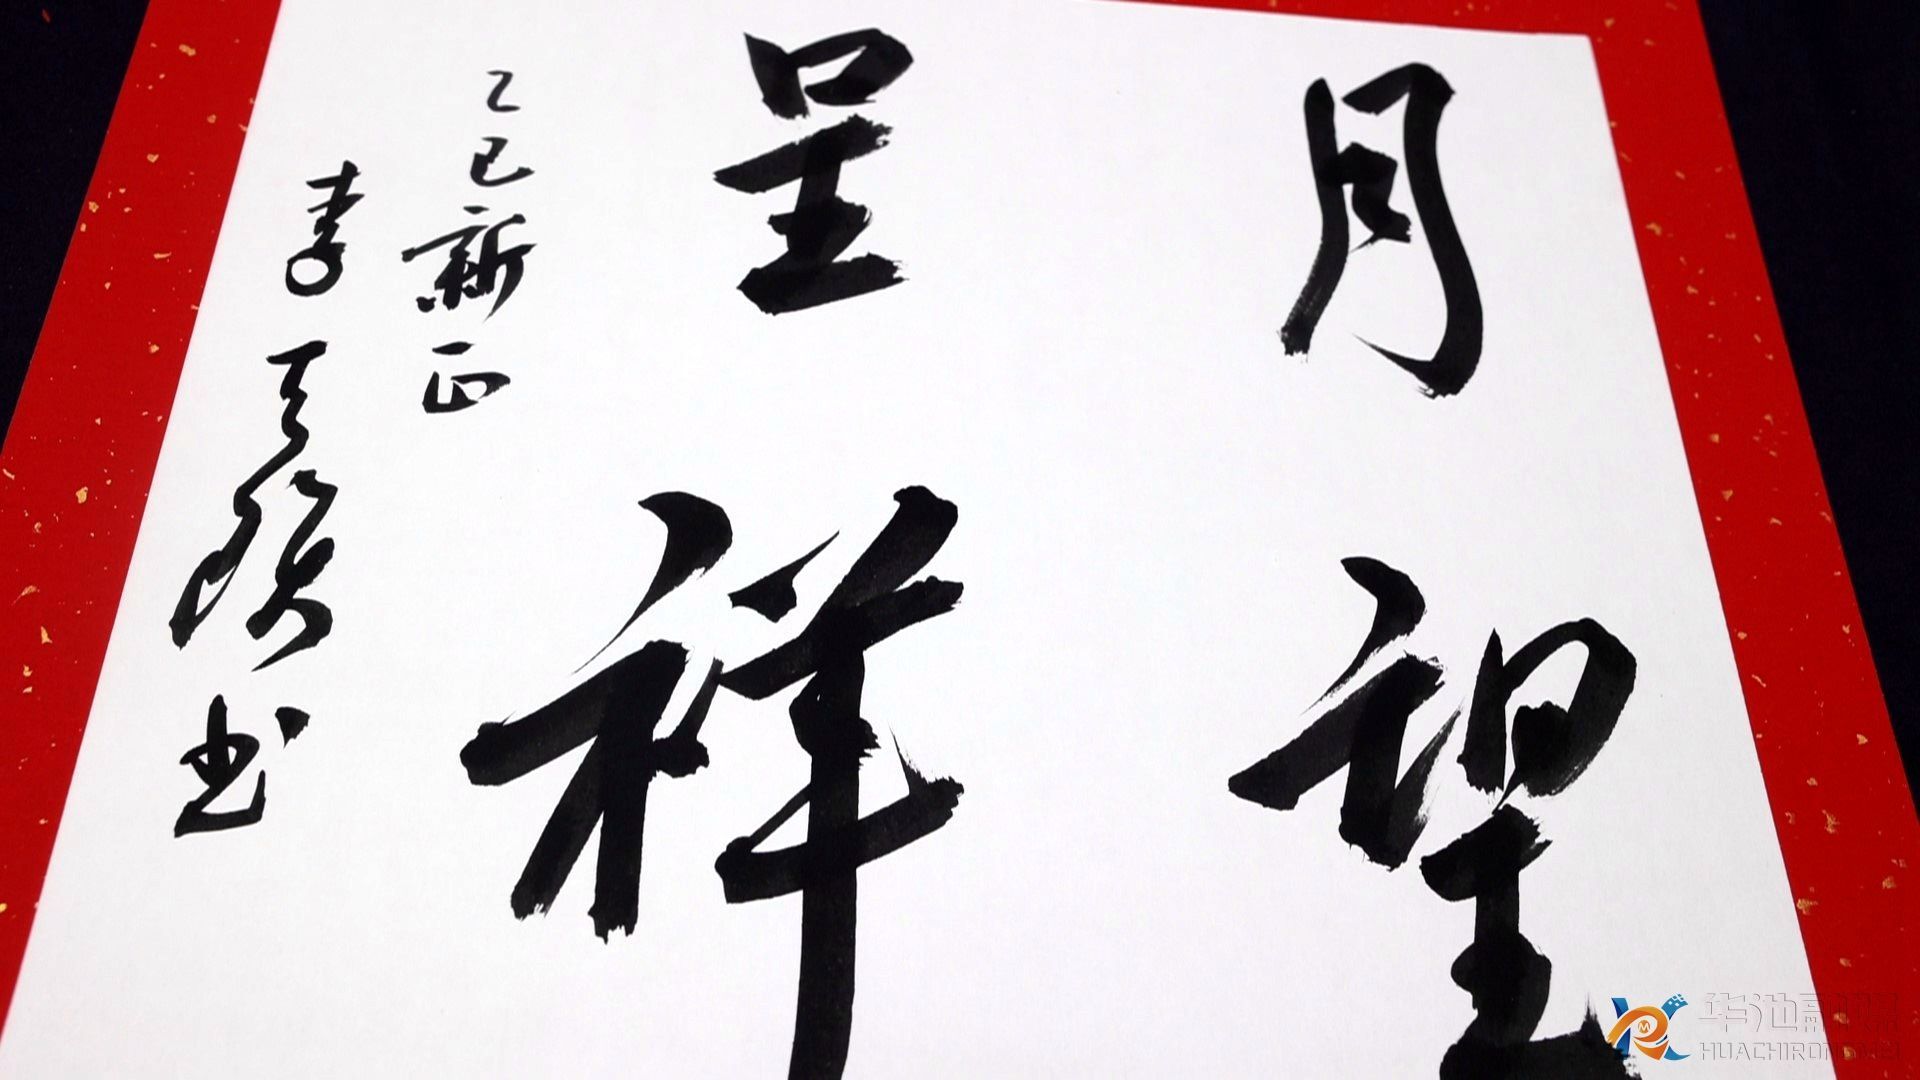 月望
呈祥
乙巳新正
李天璟书
华池融媒
HUACHIRONGMEI